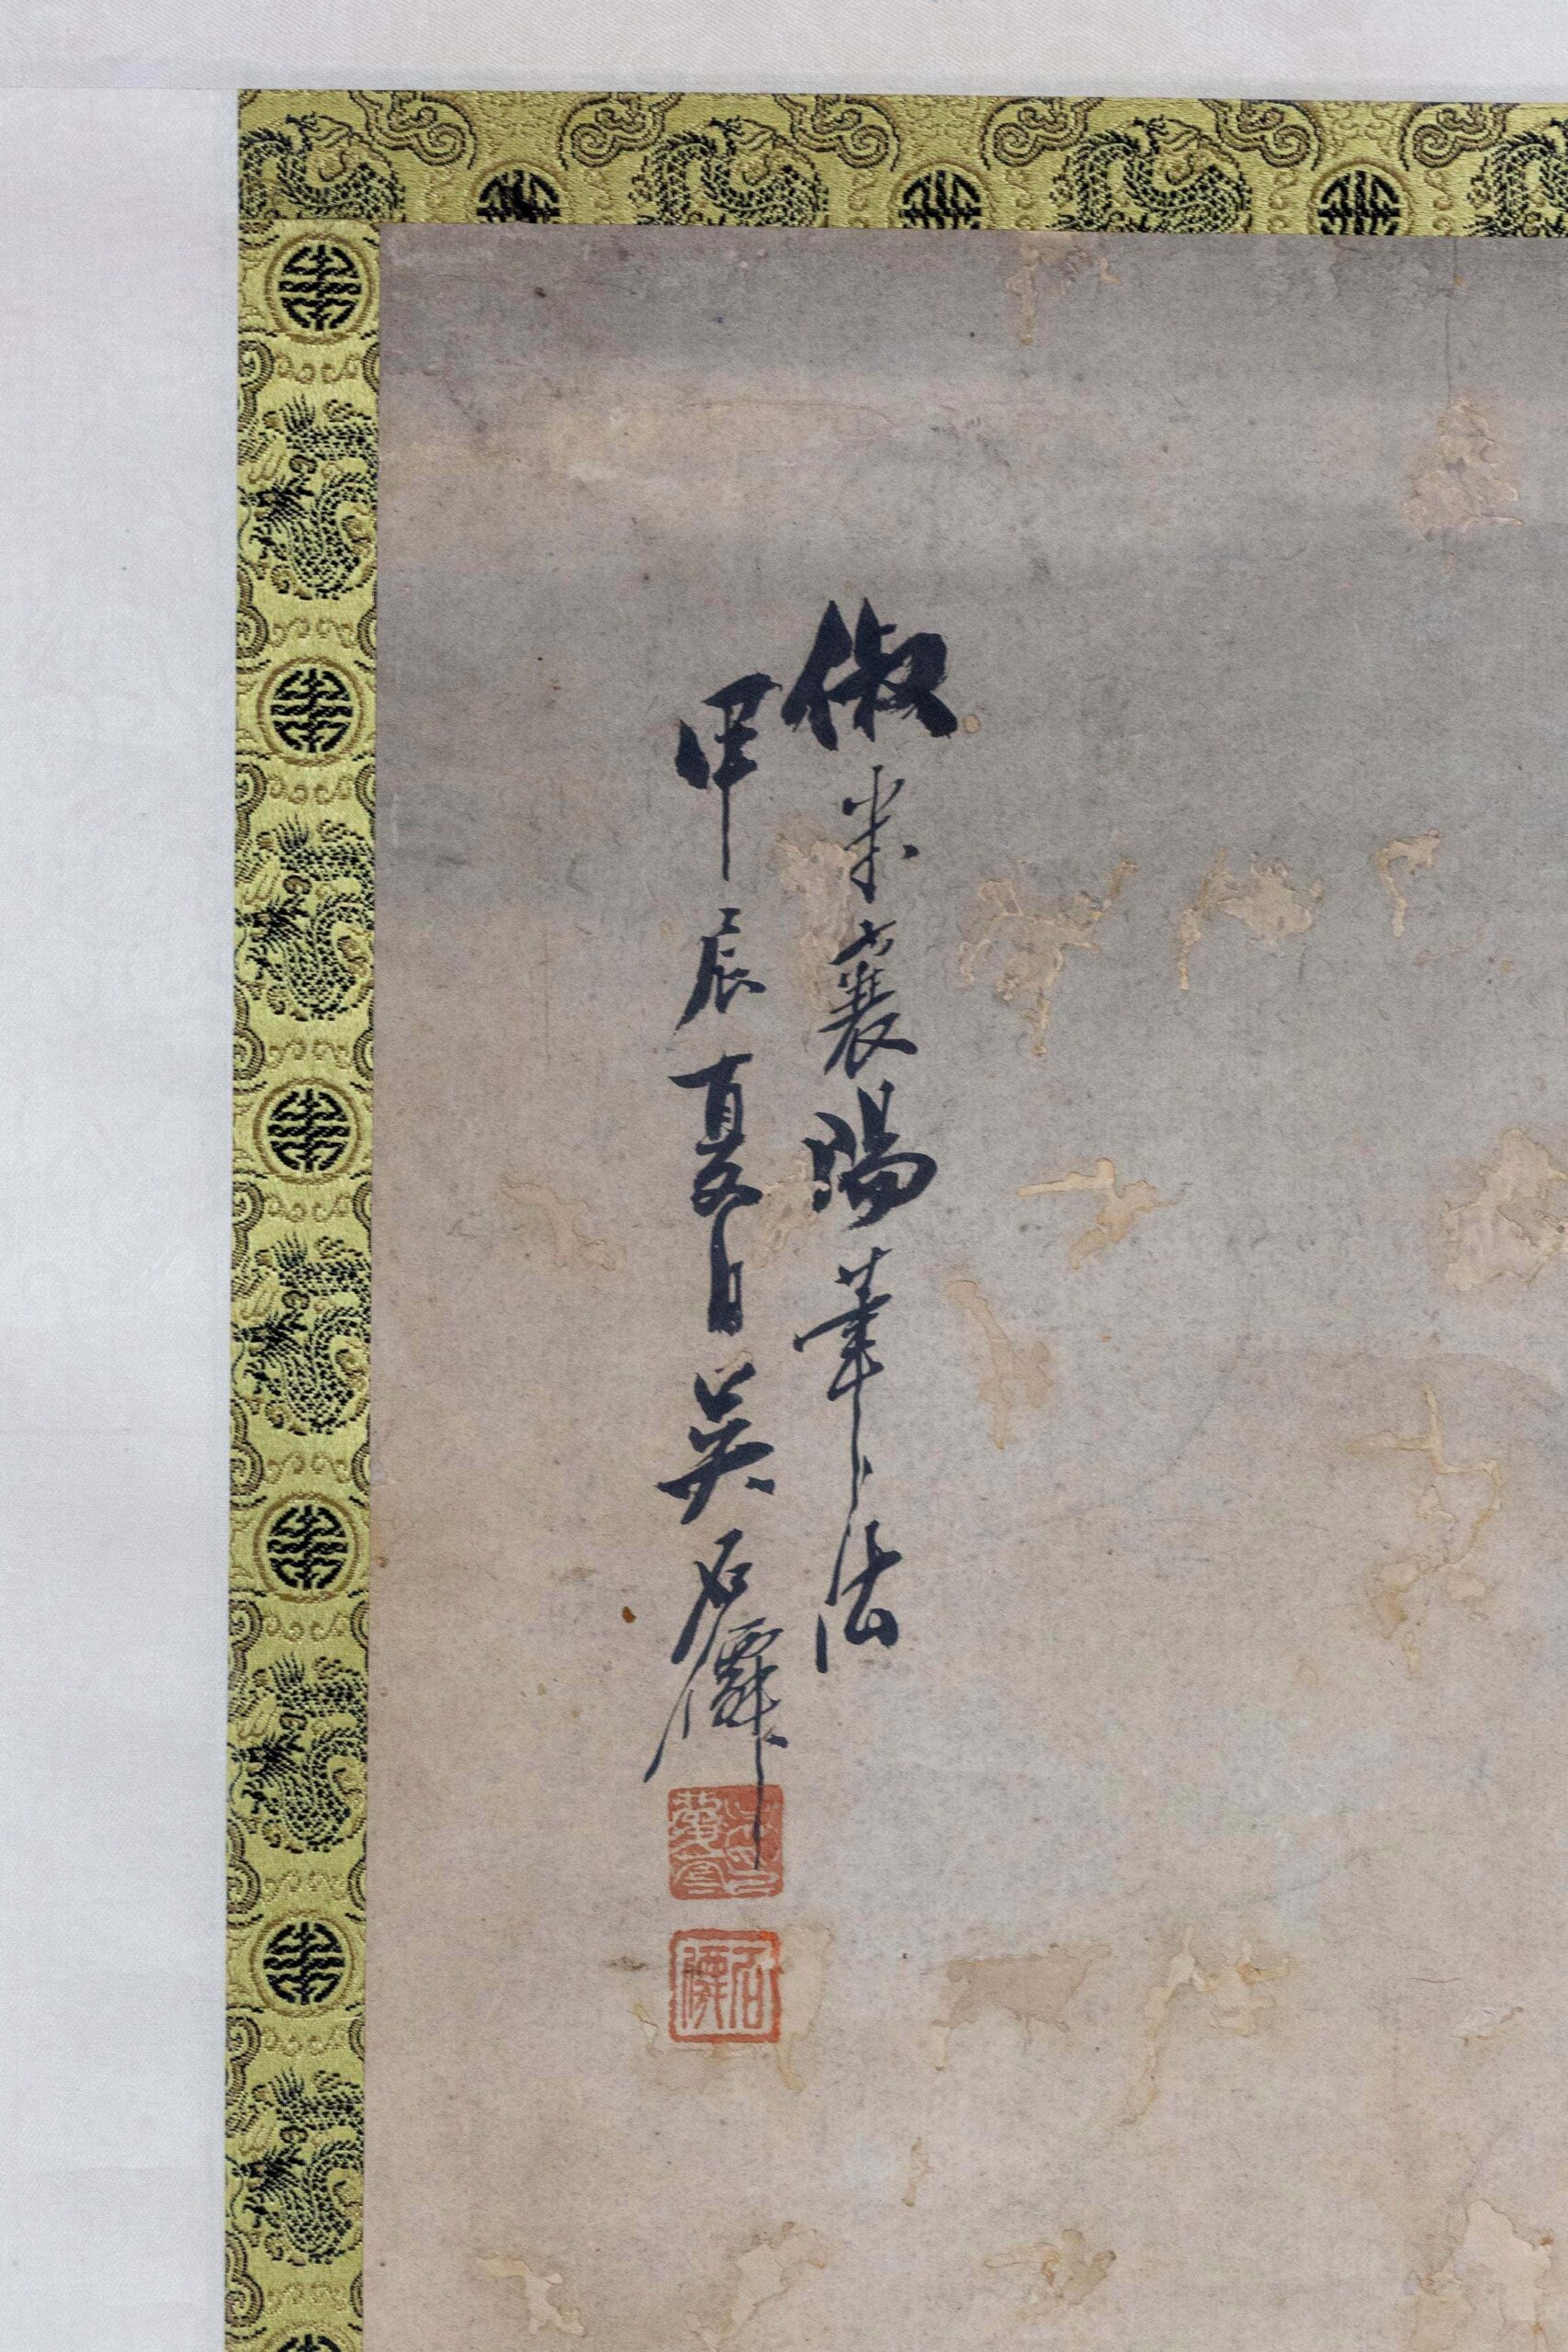 倣米襄陽筆法
甲辰夏日吳石僊
石僊